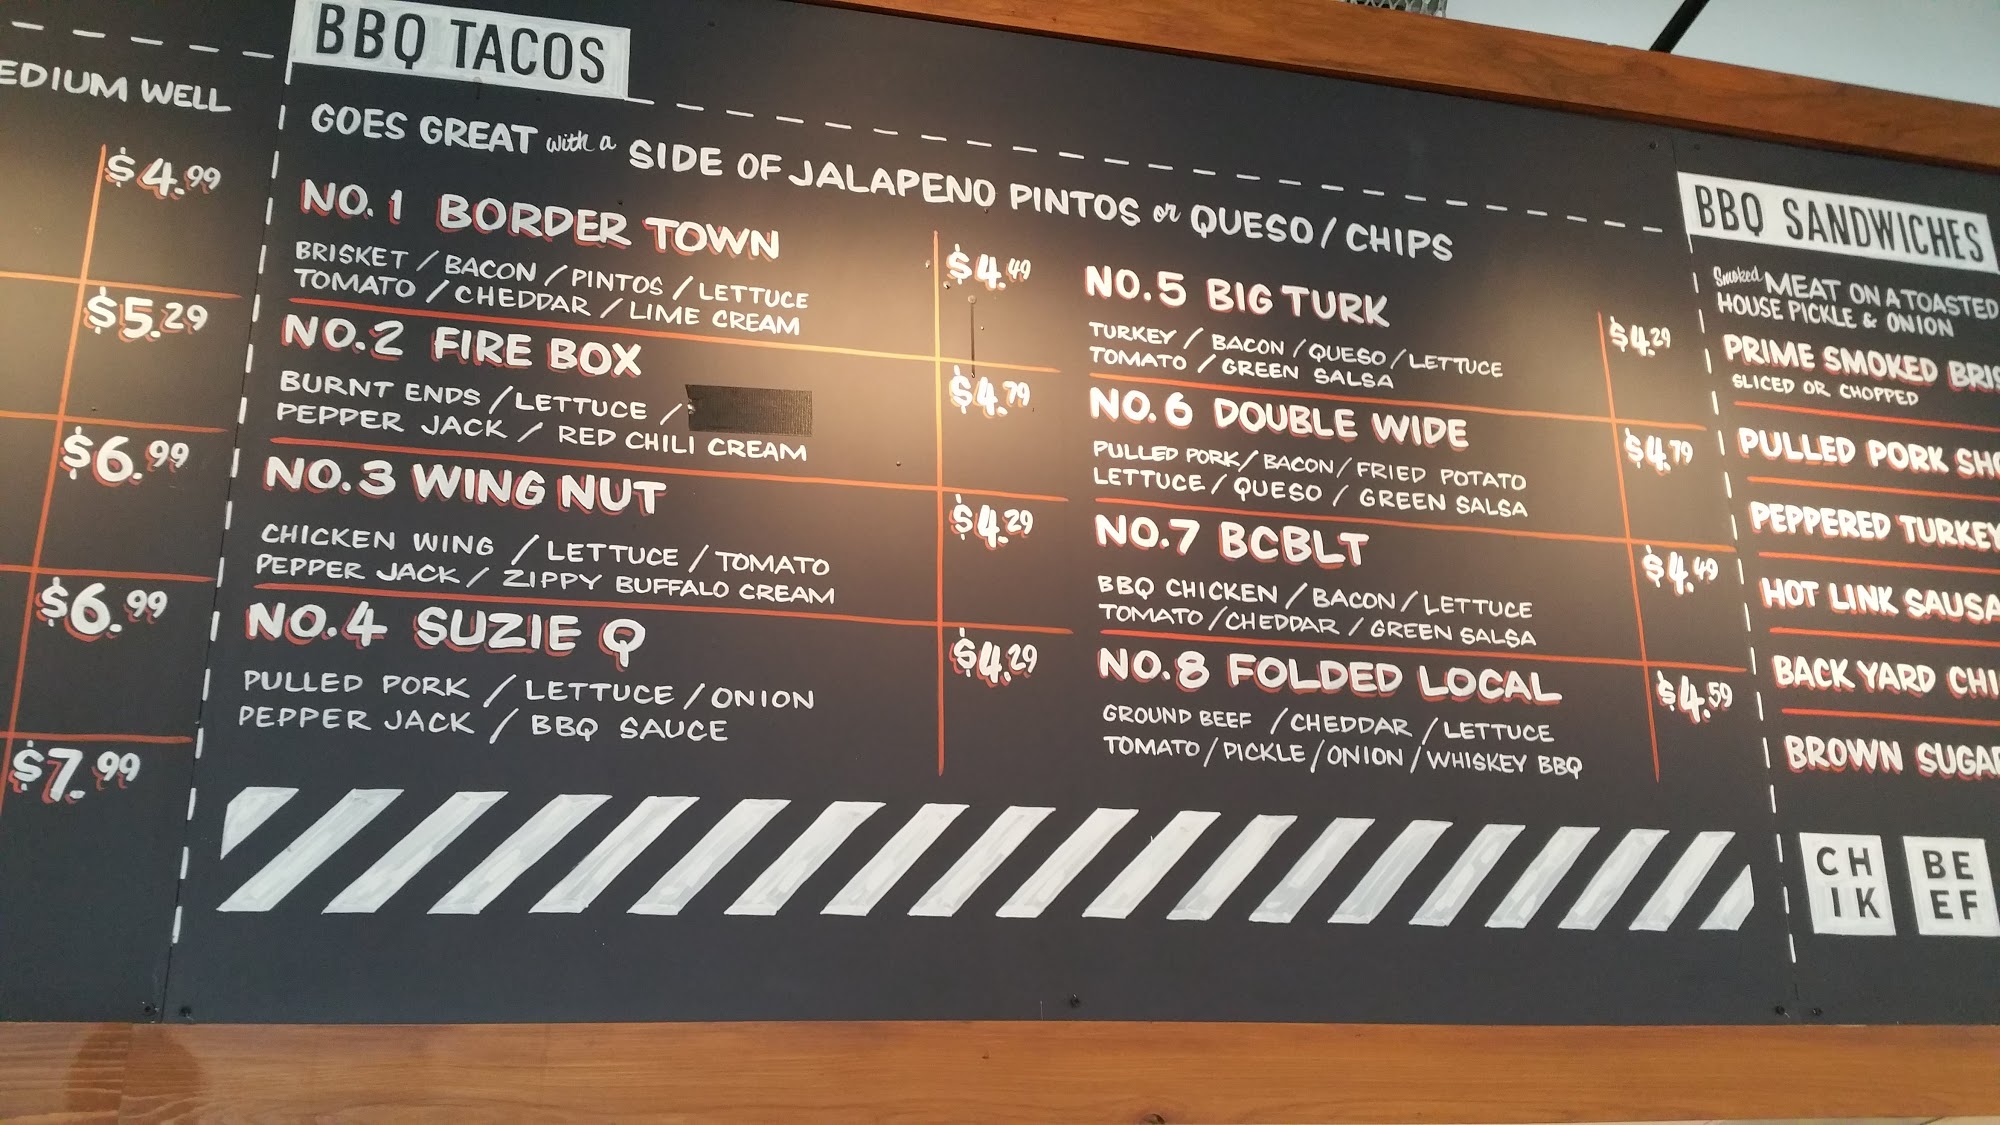 MEDIUM WELL
$4.99
$5.29
$6.99
$6.99
$7.99
BBQ TACOS
GOES GREAT with a SIDE OF JALAPENO PINTOS or QUESO / CHIPS
NO. 1 BORDER TOWN
$4.49
BRISKET / BACON / PINTOS / LETTUCE
TOMATO / CHEDDAR / LIME CREAM
NO.2 FIRE BOX
$4.79
BURNT ENDS / LETTUCE /
PEPPER JACK / RED CHILI CREAM
NO.3 WING NUT
$4.29
CHICKEN WING / LETTUCE / TOMATO
PEPPER JACK / ZIPPY BUFFALO CREAM
NO.4 SUZIE Q
$4.29
PULLED PORK / LETTUCE / ONION
PEPPER JACK / BBQ SAUCE
NO.5 BIG TURK
$4.29
TURKEY / BACON / QUESO / LETTUCE
TOMATO / GREEN SALSA
NO.6 DOUBLE WIDE
$4.79
PULLED PORK / BACON / FRIED POTATO
LETTUCE / QUESO / GREEN SALSA
NO.7 BCBLT
$4.49
BBQ CHICKEN / BACON / LETTUCE
TOMATO / CHEDDAR / GREEN SALSA
NO.8 FOLDED LOCAL
$4.59
GROUND BEEF / CHEDDAR / LETTUCE
TOMATO / PICKLE / ONION / WHISKEY BBQ
BBQ SANDWICHES
Smoked MEAT ON A TOASTED
HOUSE PICKLE & ONION
PRIME SMOKED
SLICED OR CHOPPED
PULLED PORK
PEPPERED TURKEY
HOT LINK
BACK YARD
BROWN
CH
IK
BE
EF